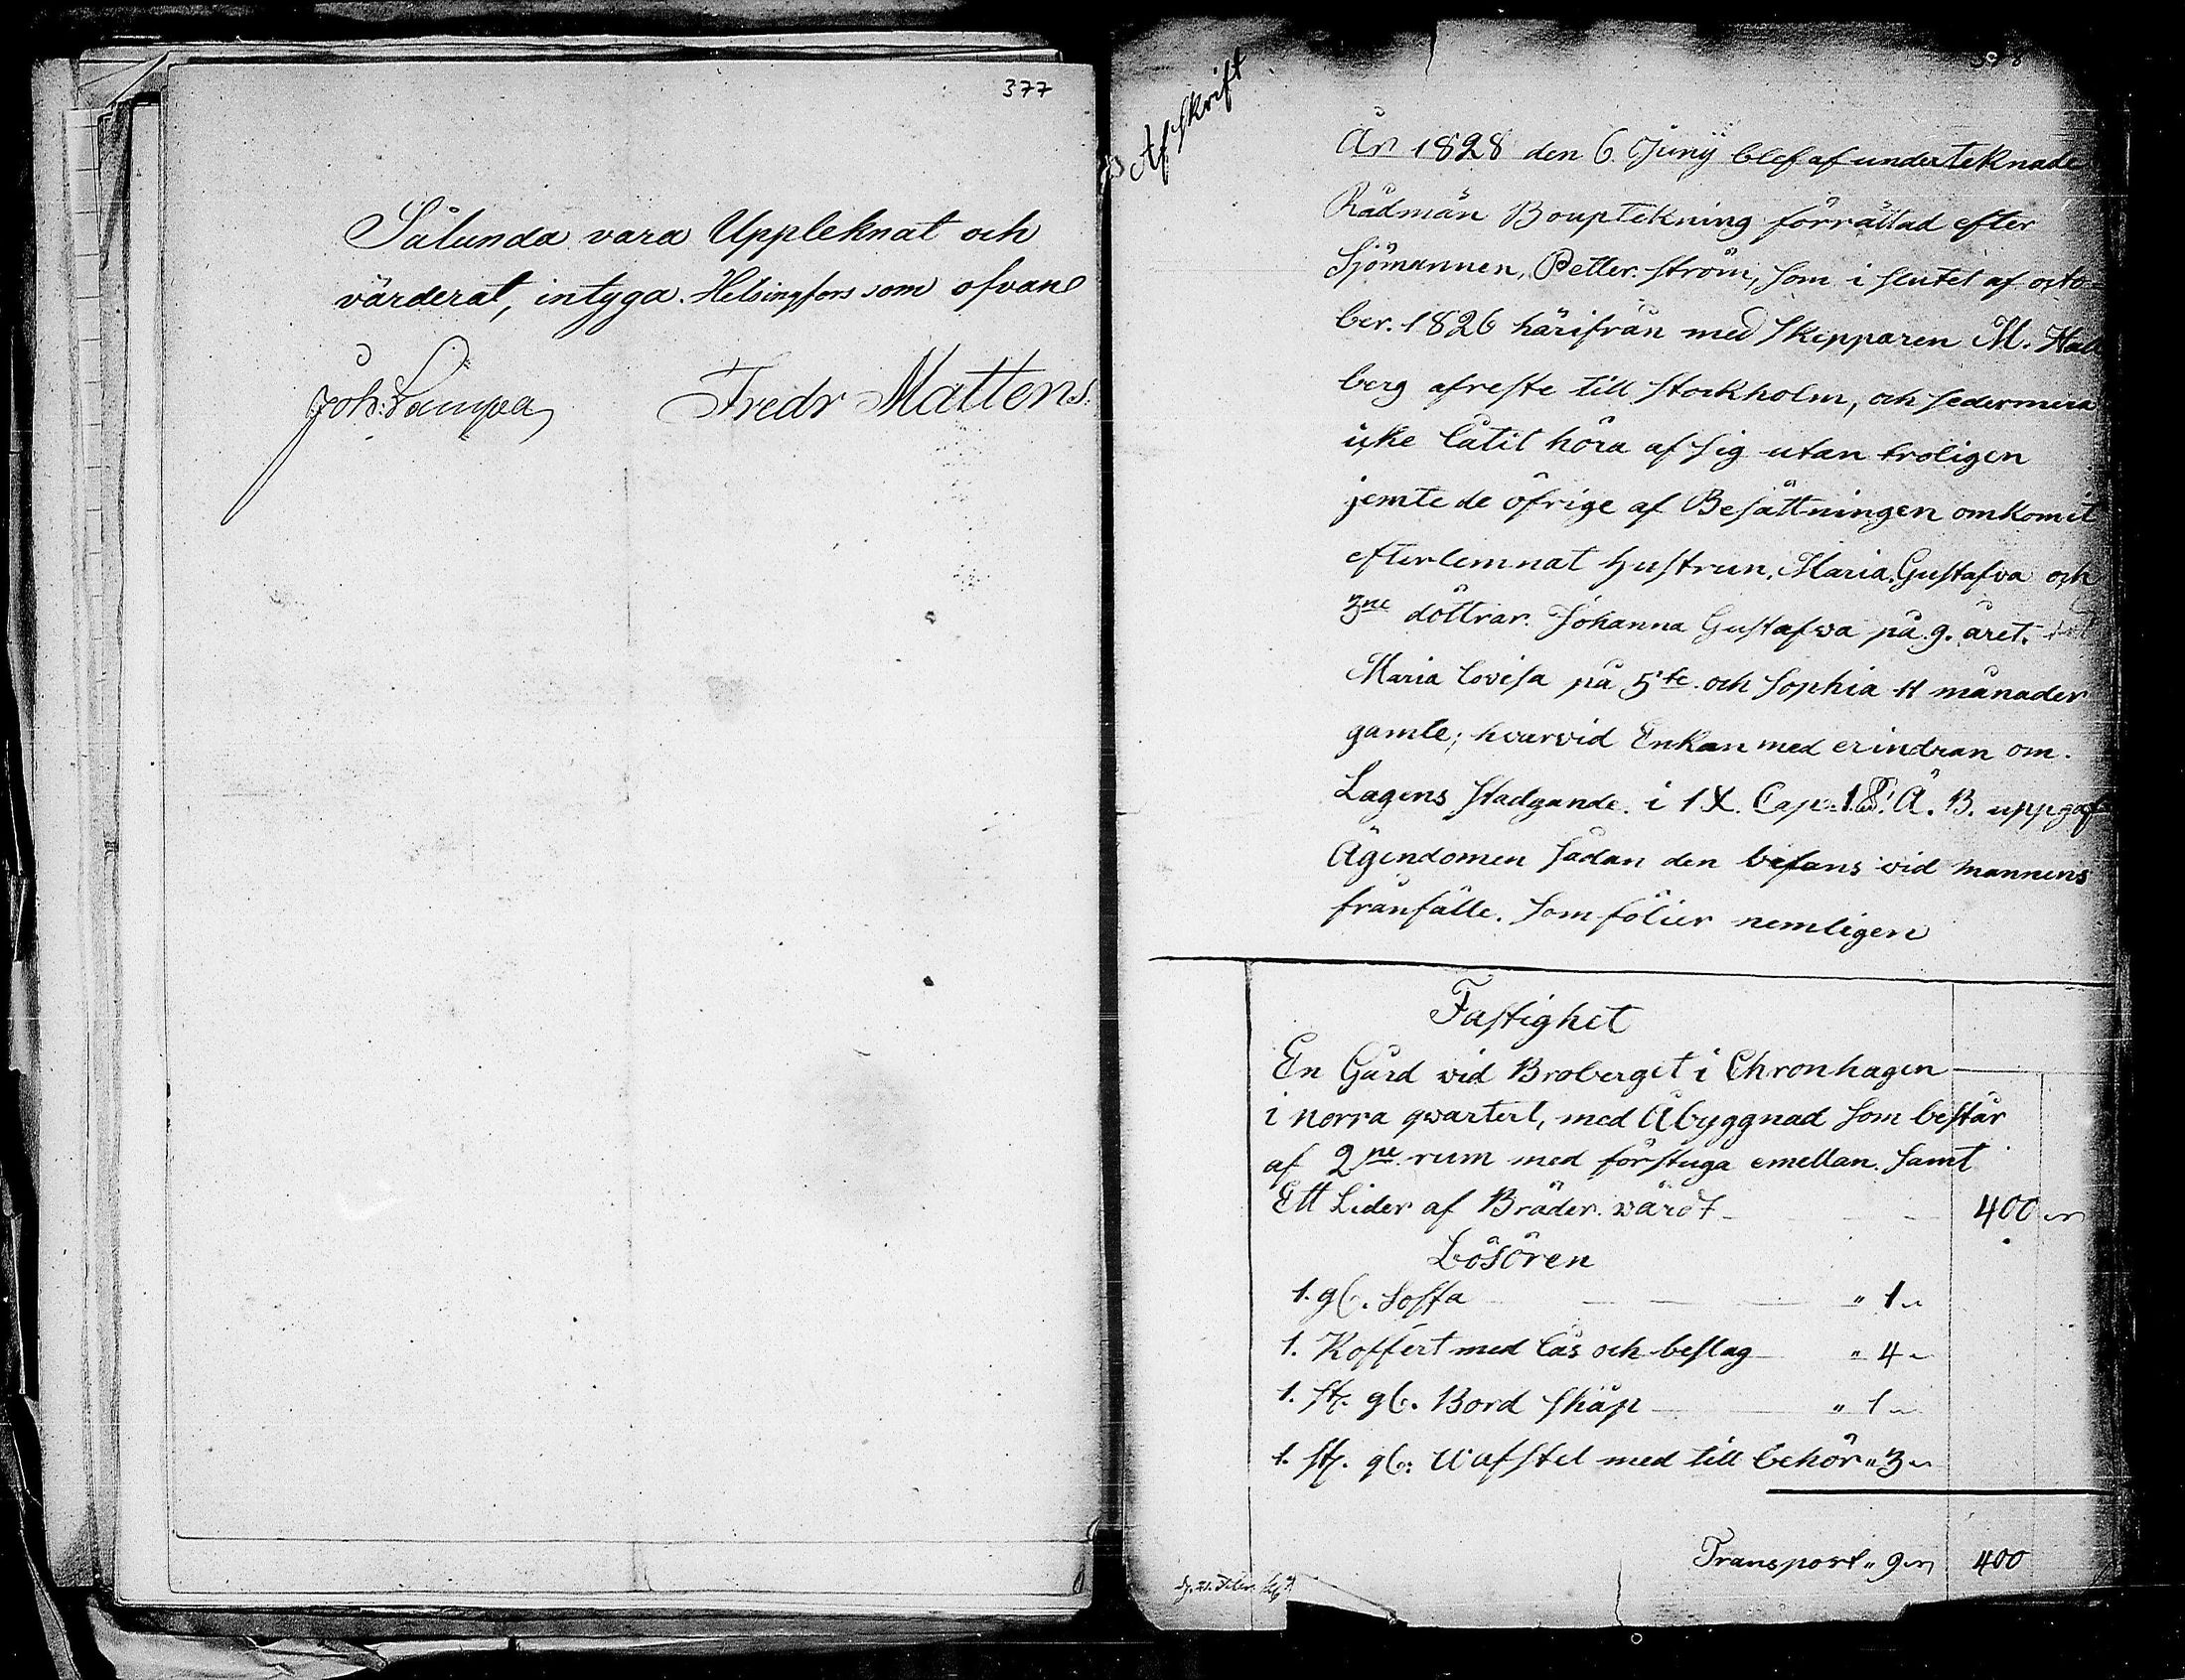 377
Sålunda vara Uppteknat och
värderat, intyga. Helsingfors som ofvan
Joh: Sampa
Fredr Mattens.
378
Afskrift
År 1828 den 6. Junij blef af underteknade
Rådmän Bouptekning förrättad efter
Sjömannen, Petter Ström, som i slutet af octo-
ber. 1826 härifrån med Skepparen M. Hall
berg afreste till Stockholm, och sedermera
icke låtit höra af sig utan troligen
jemte de öfrige af Besättningen omkomit
efterlemnat hustrun, Maria Gustafva och
3ne döttrar. Johanna Gustafva på 9. året.
Maria Lovisa på 5te och Sophia 11 månader
gamle; hvarvid Enkan med erindran om
Lagens stadgande i IX. Cap. 1. §. Ä. B. uppgaf
Ägendomen sådan den befans vid mannens
frånfälle. som följer nemligen
Fastighet
En Gård vid Broberget i Chronhagen
i norra qvartert, med Åbyggnad som består
af 2ne rum med förstuga emellan. samt
Ett Lider af Bräder. värdt 400
Lösören
1. gl. Soffa " 1
1. Koffert med lås och beslag " 4
1. st. gl. Bord skåp " 1
1. st. gl: Väfstol med till behör " 3
Transport " 9 400